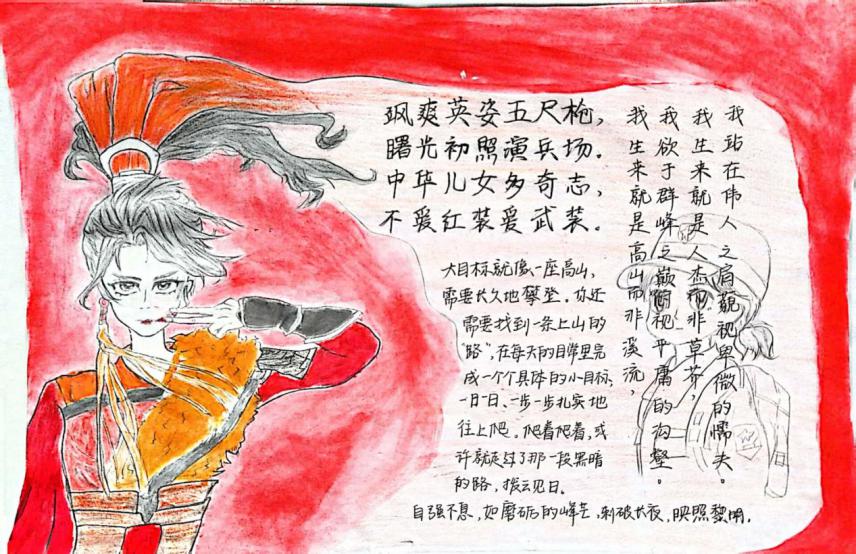 飒爽英姿五尺枪，
曙光初照演兵场。
中华儿女多奇志，
不爱红装爱武装。
我生来就是高山而非溪流，
我欲于群峰之巅俯视平庸的沟壑。
我生来就是人杰而非草芥，
我站在伟人之肩藐视卑微的懦夫。
大目标就像一座高山，
需要长久地攀登。你还
需要找到一条上山的
“路”，在每天的日常里完
成一个个具体的小目标，
一日一日、一步一步扎实地
往上爬。爬着爬着，或
许就走过了那一段黑暗
的路，拨云见日。
自强不息，如磨砺的峰芒，刺破长夜，映照黎明。